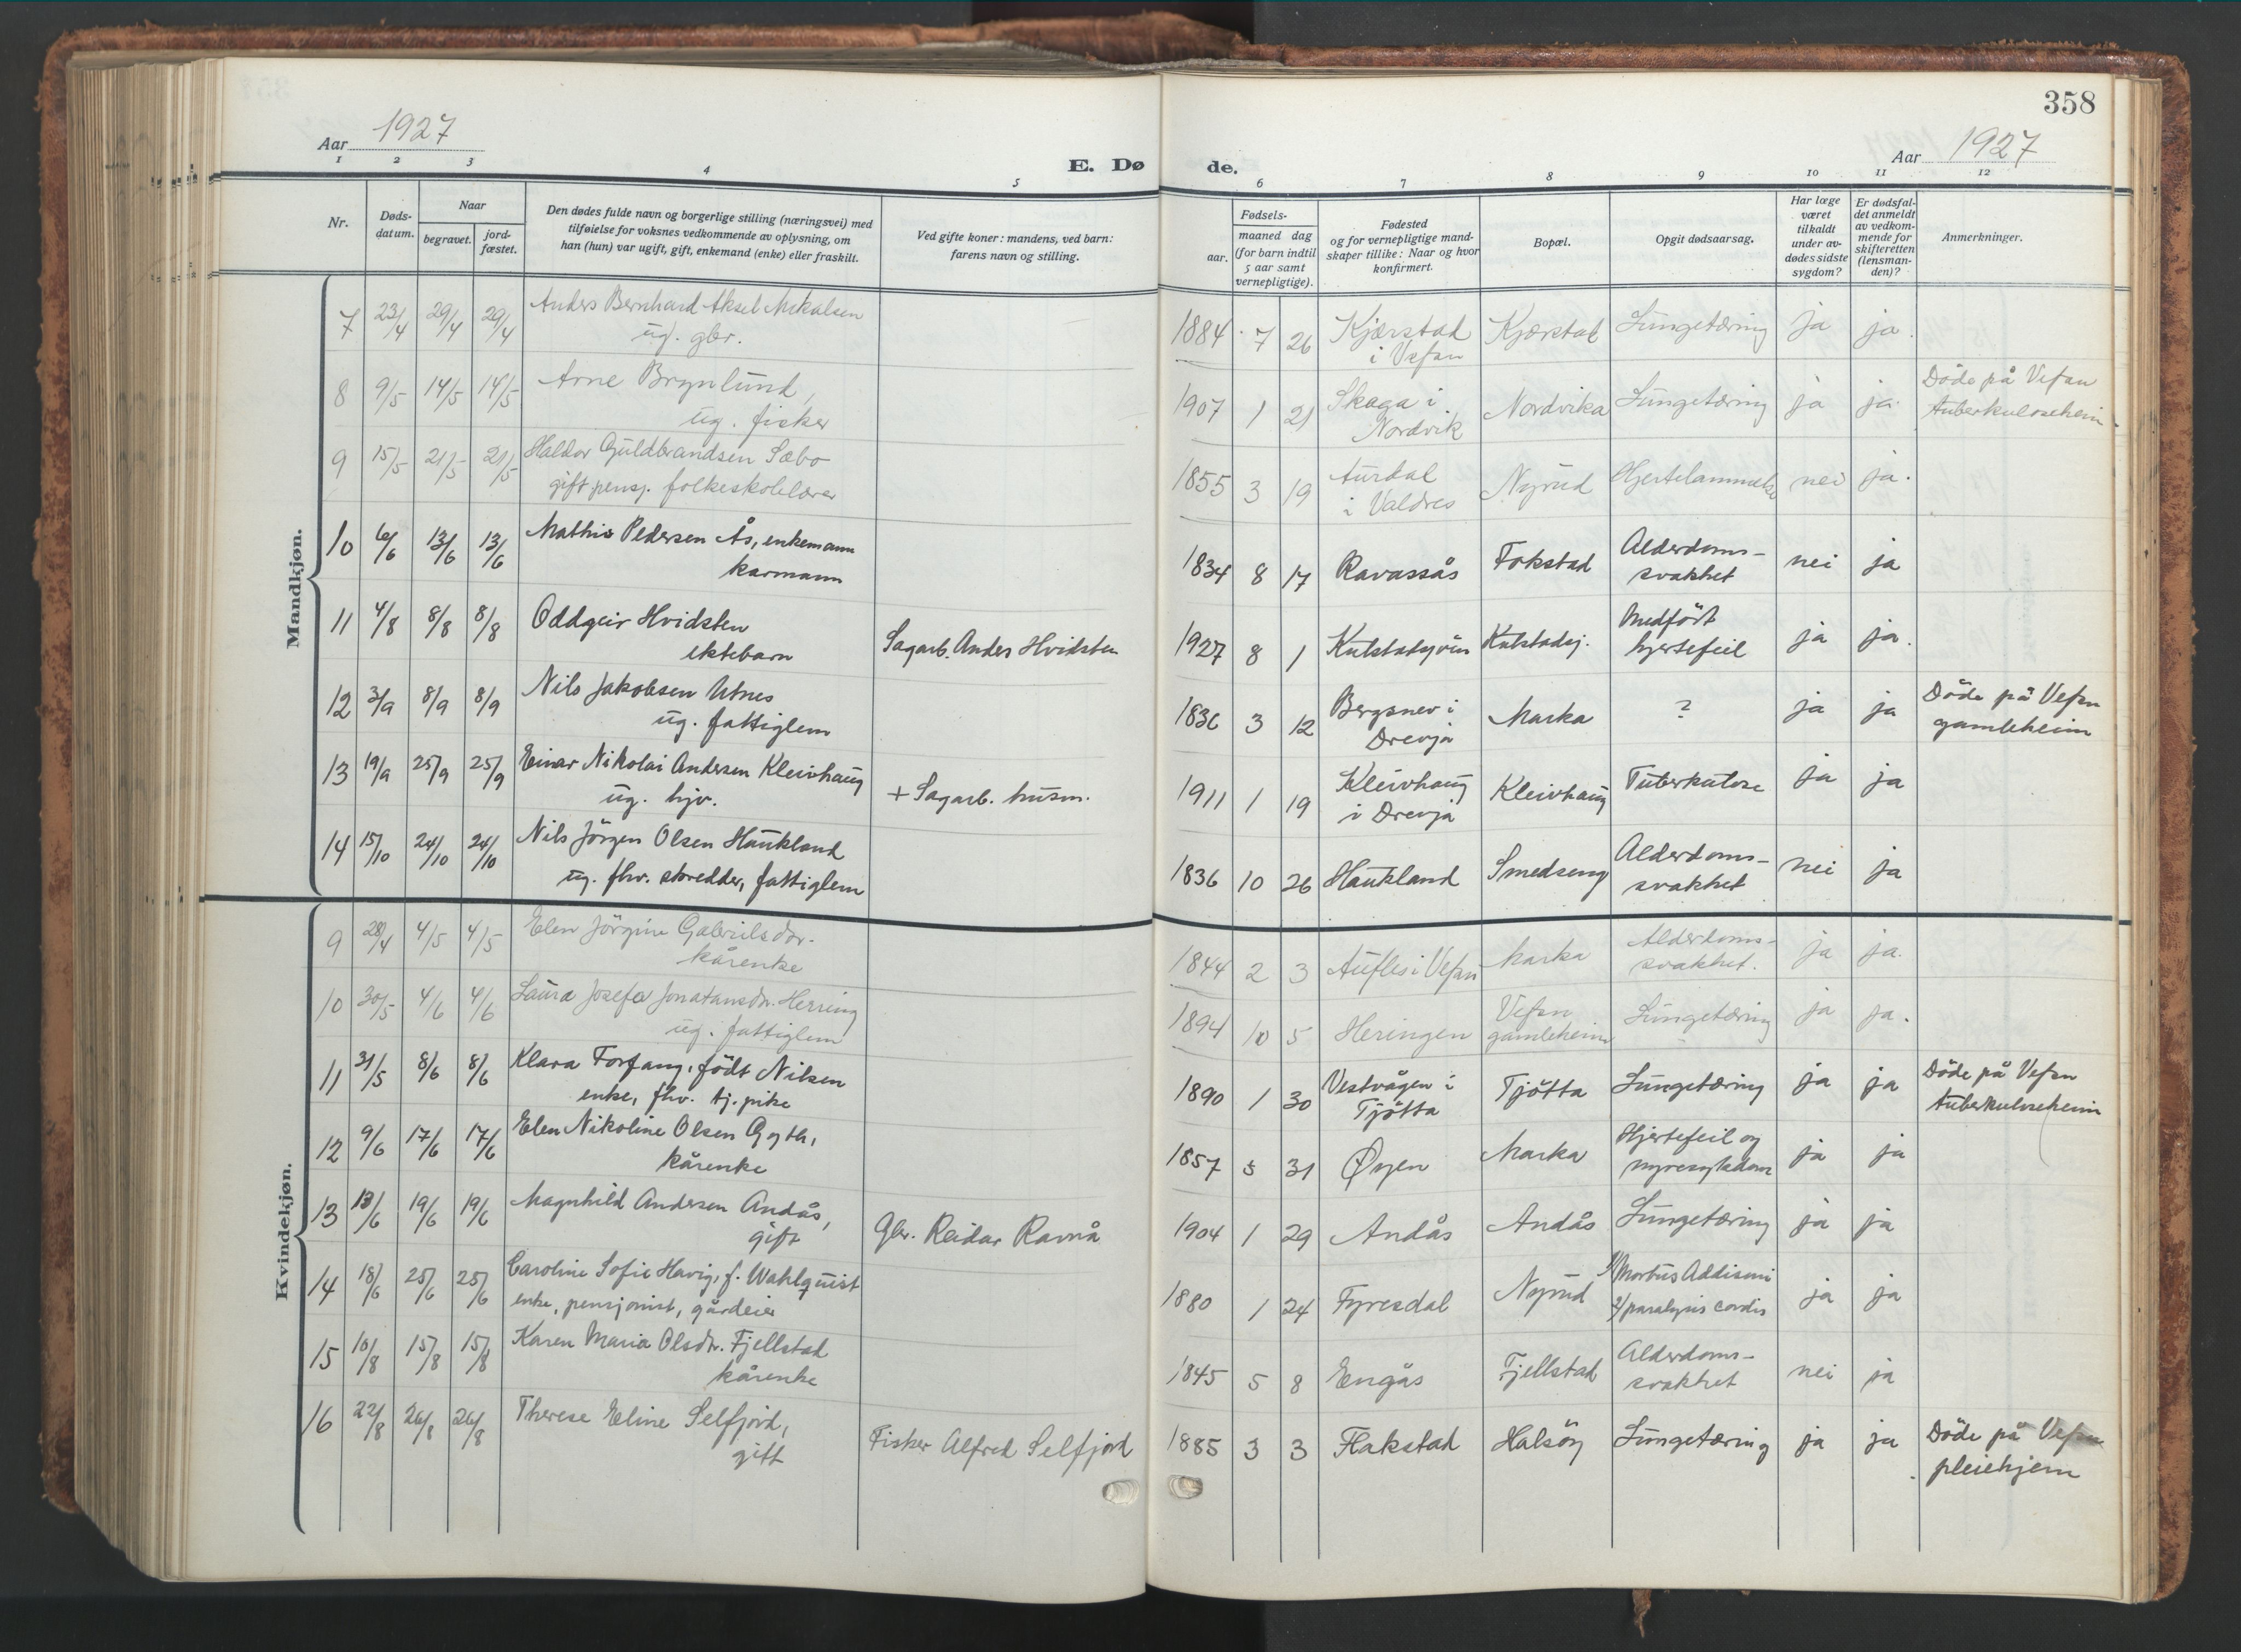 358
Aar 1927
E. Døde.
Aar 1927
1 2 3 4 5 6 7 8 9 10 11 12
Nr.
Dødsdatum.
Naar
begravet.
jordfæstet.
Den dødes fulde navn og borgerlige stilling (næringsvei) med
tilføielse for voksnes vedkommende av oplysning, om
han (hun) var ugift, gift, enkemand (enke) eller fraskilt.
Ved gifte koner: mandens, ved barn:
farens navn og stilling.
Fødsels-
aar.
maaned dag
(for barn indtil
5 aar samt
vernepligtige).
Fødested
og for vernepligtige mand-
skaper tillike: Naar og hvor
konfirmert.
Bopæl.
Opgit dødsaarsag.
Har læge
været
tilkaldt
under av-
dødes sidste
sygdom?
Er dødsfal-
det anmeldt
av vedkom-
mende for
skifteretten
(lensman-
den)?
Anmerkninger.
Mandkjøn.
7 23/4 29/4 29/4 Anders Bernhard Aksel Mikalsen
ug. gbr.
1884 7 26 Kjærstad
i Vefsn
Kjærstad Lungetæring ja ja.
8 9/5 14/5 14/5 Arne Brynlund,
ug. fisker
1907 1 21 Skaga i
Nordvik
Nordvika Lungetæring ja ja.
Döde på Vefsn
tuberkuloseheim
9 15/5 21/5 21/5 Haldor Guldbrandsen Sæbo
gift pensj. folkeskolelærer
1855 3 19 Aurdal
i Valdres
Nyrud Hjertelammelse nei ja.
10 6/6 13/6 13/6 Mathis Pedersen Ås, enkemann
karmann
1834 8 17 Ravassås Fokstad Alderdoms-
svakhet
nei ja
11 4/8 8/8 8/8 Oddgeir Hvidsten
ektebarn
Sagarb. Anders Hvidsten
1927 8 1 Kulstadsjøen Kulstadsj. Medfödt
hjertefeil
ja ja.
12 3/9 8/9 8/9 Nils Jakobsen Utnes
ug. fattiglem
1836 3 12 Bergsnev i
Drevja
Marka ? ja ja
Döde på Vefsn
gamleheim
13 19/9 25/9 25/9 Einar Nikolai Andersen Kleivhaug
ug. hjv.
+ Sagarb. husm.
1911 1 19 Kleivhaug
i Drevja
Kleivhaug Tuberkulose ja ja
14 15/10 24/10 24/10 Nils Jörgen Olsen Haukland
ug. fhv. skredder, fattiglem
1836 10 26 Haukland Smedseng Alderdoms-
svakhet
nei ja
Kvindekjøn.
9 28/4 4/5 4/5 Elen Jörgine Gabrielsdr.
kårenke
1844 2 3 Aufles i Vefsn Marka Alderdoms-
svakhet.
ja ja.
10 30/5 4/6 4/6 Laura Josefa Jonatansdr. Herring
ug. fattiglem
1894 10 5 Heringen Vefsn
gamleheim
Lungetæring ja ja.
11 31/5 8/6 8/6 Klara Forfang, födt Nilsen
enke, fhv. tj. pike
1890 1 30 Vestvågen i
Tjötta
Tjötta Lungetæring ja ja
Döde på Vefsn
tuberkuloseheim
12 9/6 17/6 17/6 Elen Nikoline Olsen Gyth,
kårenke
1857 5 31 Øyen Marka Hjertefeil og
nyresykdom
ja ja
13 13/6 19/6 19/6 Magnhild Andersen Andås,
gift
Gbr. Reidar Ravnå
1904 1 29 Andås Andås Lungetæring ja ja
14 18/6 25/6 25/6 Caroline Sofie Havig, f. Wahlquist
enke, pensjonist, gårdeier
1880 1 24 Fyresdal Nyrud 1/ Morbus Addisoni
2/ paralysis cordis
ja ja
15 10/8 15/8 15/8 Karen Maria Olsdr. Fjellstad
kårenke
1845 5 8 Engås Fjellstad Alderdoms-
svakhet
nei ja
16 22/8 26/8 26/8 Therese Eline Selfjord,
gift
Fisker Alfred Selfjord
1885 3 3 Flakstad Halsöy Lungetæring ja ja
Döde på Vefsn
pleiehjem